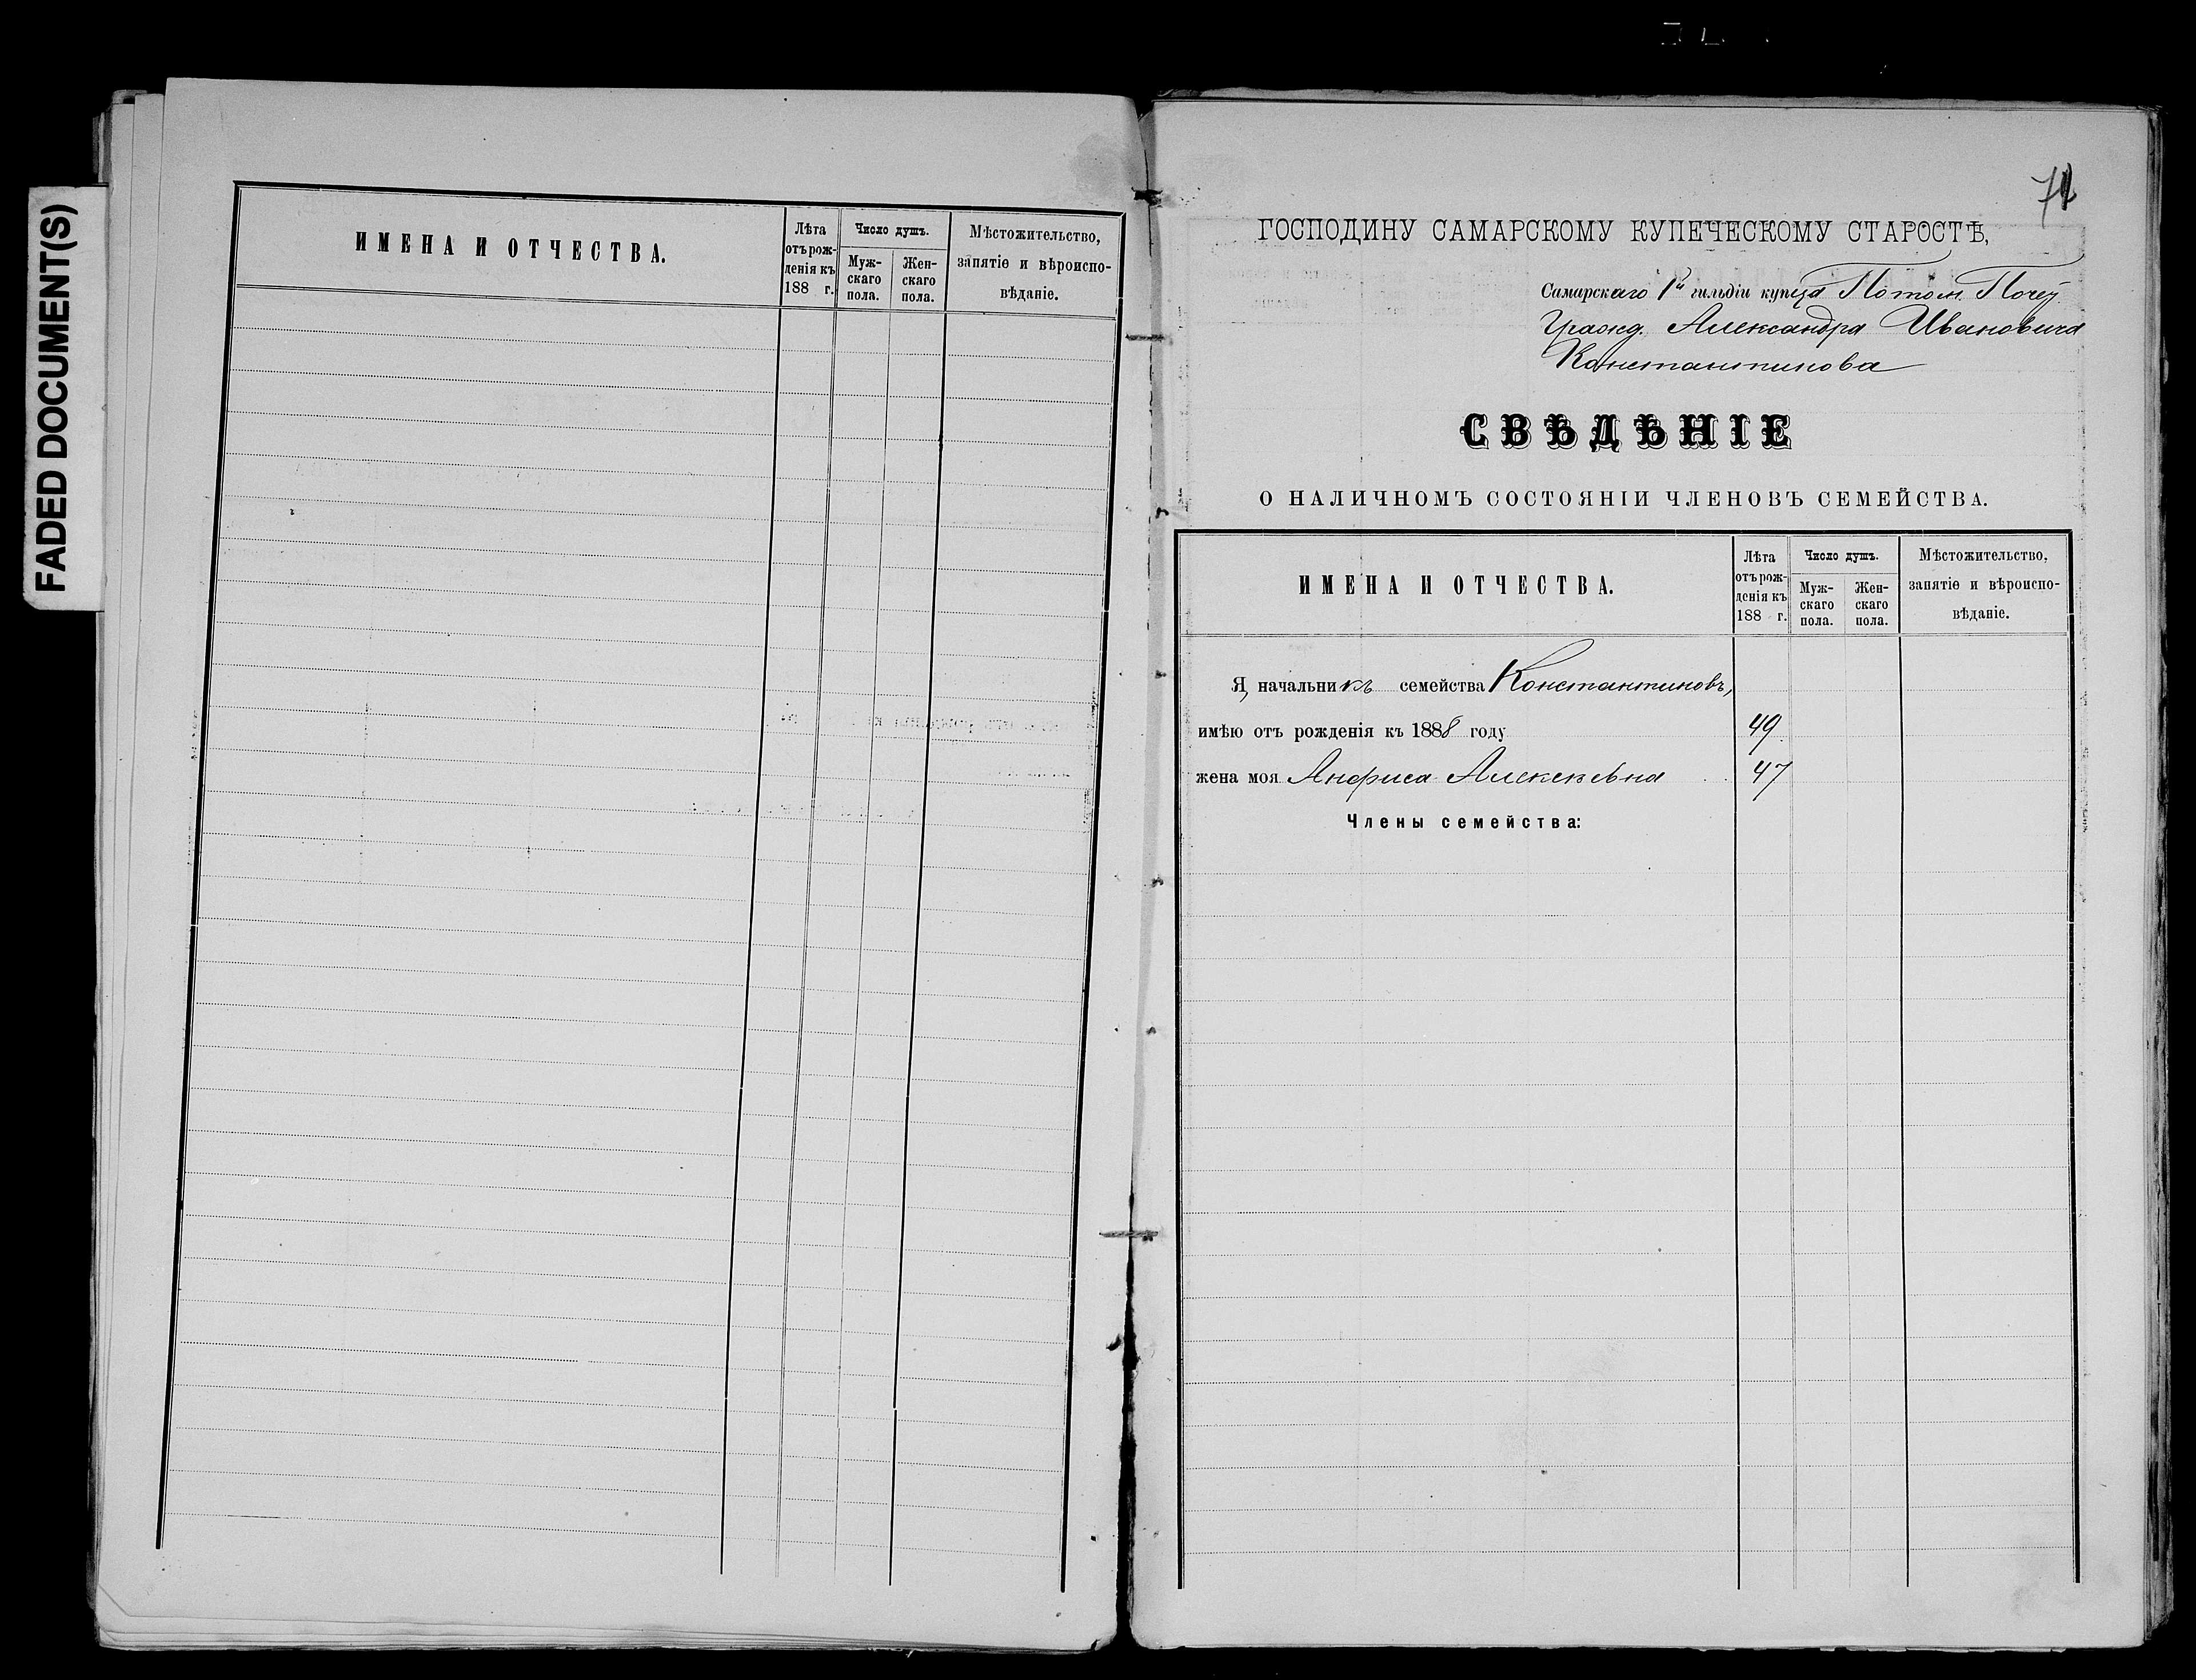 FADED DOCUMENT(S)
ИМЕНА И ОТЧЕСТВА.
Лѣта отъ рожденія къ 188 г.
Число душъ.
Мужскаго пола.
Женскаго пола.
Мѣстожительство, занятіе и вѣроисповѣданіе.
ГОСПОДИНУ САМАРСКОМУ КУПЕЧЕСКОМУ СТАРОСТѢ,
Самарскаго 1й гильдіи купца Потом. Почет.
Гражд. Александра Ивановича
Константинова
СВѢДѢНІЕ
О НАЛИЧНОМЪ СОСТОЯНІИ ЧЛЕНОВЪ СЕМЕЙСТВА.
ИМЕНА И ОТЧЕСТВА.
Лѣта отъ рожденія къ 188 г.
Число душъ.
Мужскаго пола.
Женскаго пола.
Мѣстожительство, занятіе и вѣроисповѣданіе.
Я, начальникъ семейства Константиновъ,
имѣю отъ рожденія къ 1888 году 49
жена моя Анфиса Алексѣевна 47
Члены семейства: